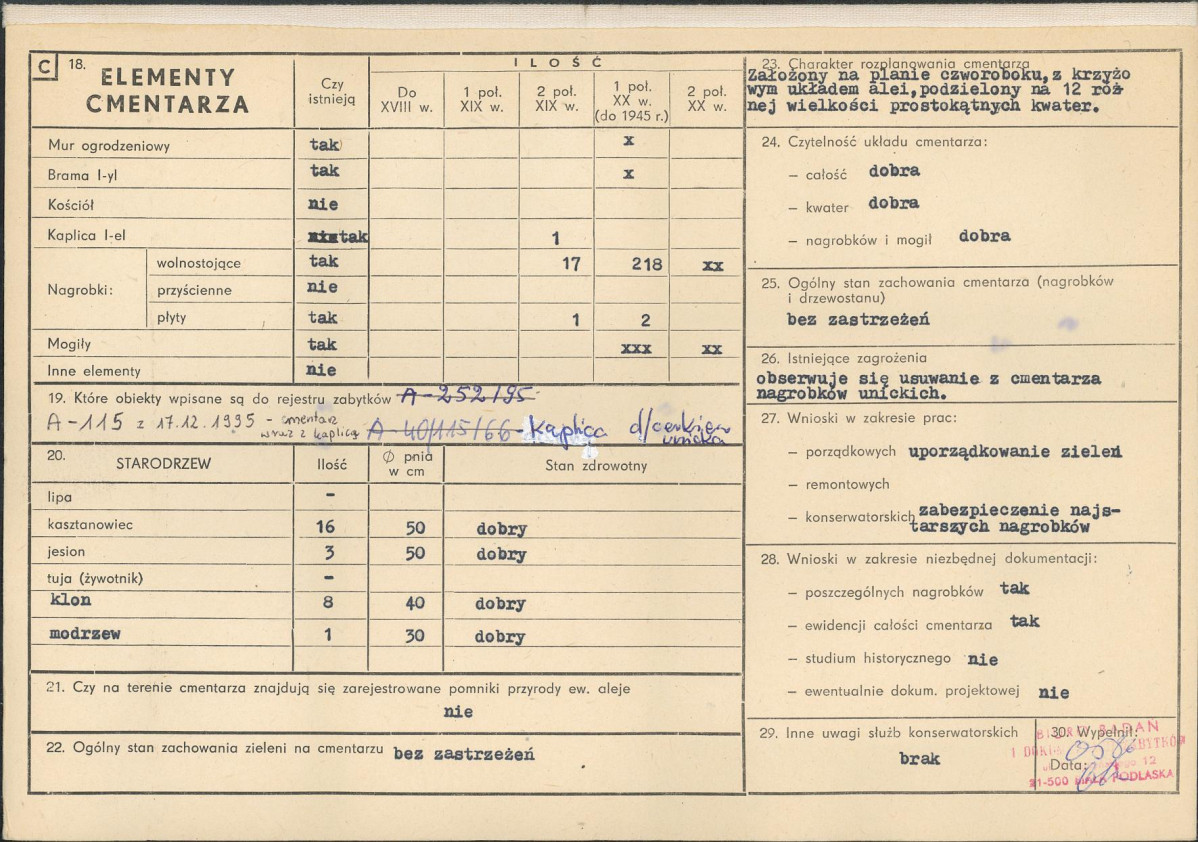 C 18. ELEMENTY CMENTARZA
Czy istnieją
ILOŚĆ
Do XVIII w.
1 poł. XIX w.
2 poł. XIX w.
1 poł. XX w. (do 1945 r.)
2 poł. XX w.
Mur ogrodzeniowy tak x
Brama I-yl tak x
Kościół nie
Kaplica I-el tak 1
Nagrobki:
wolnostojące tak 17 218 xx
przyścienne nie
płyty tak 1 2
Mogiły tak xxx xx
Inne elementy nie
19. Które obiekty wpisane są do rejestru zabytków A-252/95
A-115 z 17.12.1995 - cmentarz
wraz z kaplicą A-40/115/66 - Kaplica d/cerkiew
unicka
20. STARODRZEW Ilość Ø pnia w cm Stan zdrowotny
lipa -
kasztanowiec 16 50 dobry
jesion 3 50 dobry
tuja (żywotnik) -
klon 8 40 dobry
modrzew 1 30 dobry
21. Czy na terenie cmentarza znajdują się zarejestrowane pomniki przyrody ew. aleje
nie
22. Ogólny stan zachowania zieleni na cmentarzu bez zastrzeżeń
23. Charakter rozplanowania cmentarza
Założony na planie czworoboku, z krzyżo
wym układem alei, podzielony na 12 róż
nej wielkości prostokątnych kwater.
24. Czytelność układu cmentarza:
– całość dobra
– kwater dobra
– nagrobków i mogił dobra
25. Ogólny stan zachowania cmentarza (nagrobków
i drzewostanu)
bez zastrzeżeń
26. Istniejące zagrożenia
obserwuje się usuwanie z cmentarza
nagrobków unickich.
27. Wnioski w zakresie prac:
– porządkowych uporządkowanie zieleni
– remontowych
– konserwatorskich zabezpieczenie najs-
tarszych nagrobków
28. Wnioski w zakresie niezbędnej dokumentacji:
– poszczególnych nagrobków tak
– ewidencji całości cmentarza tak
– studium historycznego nie
– ewentualnie dokum. projektowej nie
29. Inne uwagi służb konserwatorskich
brak
30. Wypełnił:
Data:
BIURO BADAŃ
I DOK ZABYTKÓW
12
21-500 BIAŁA PODLASKA